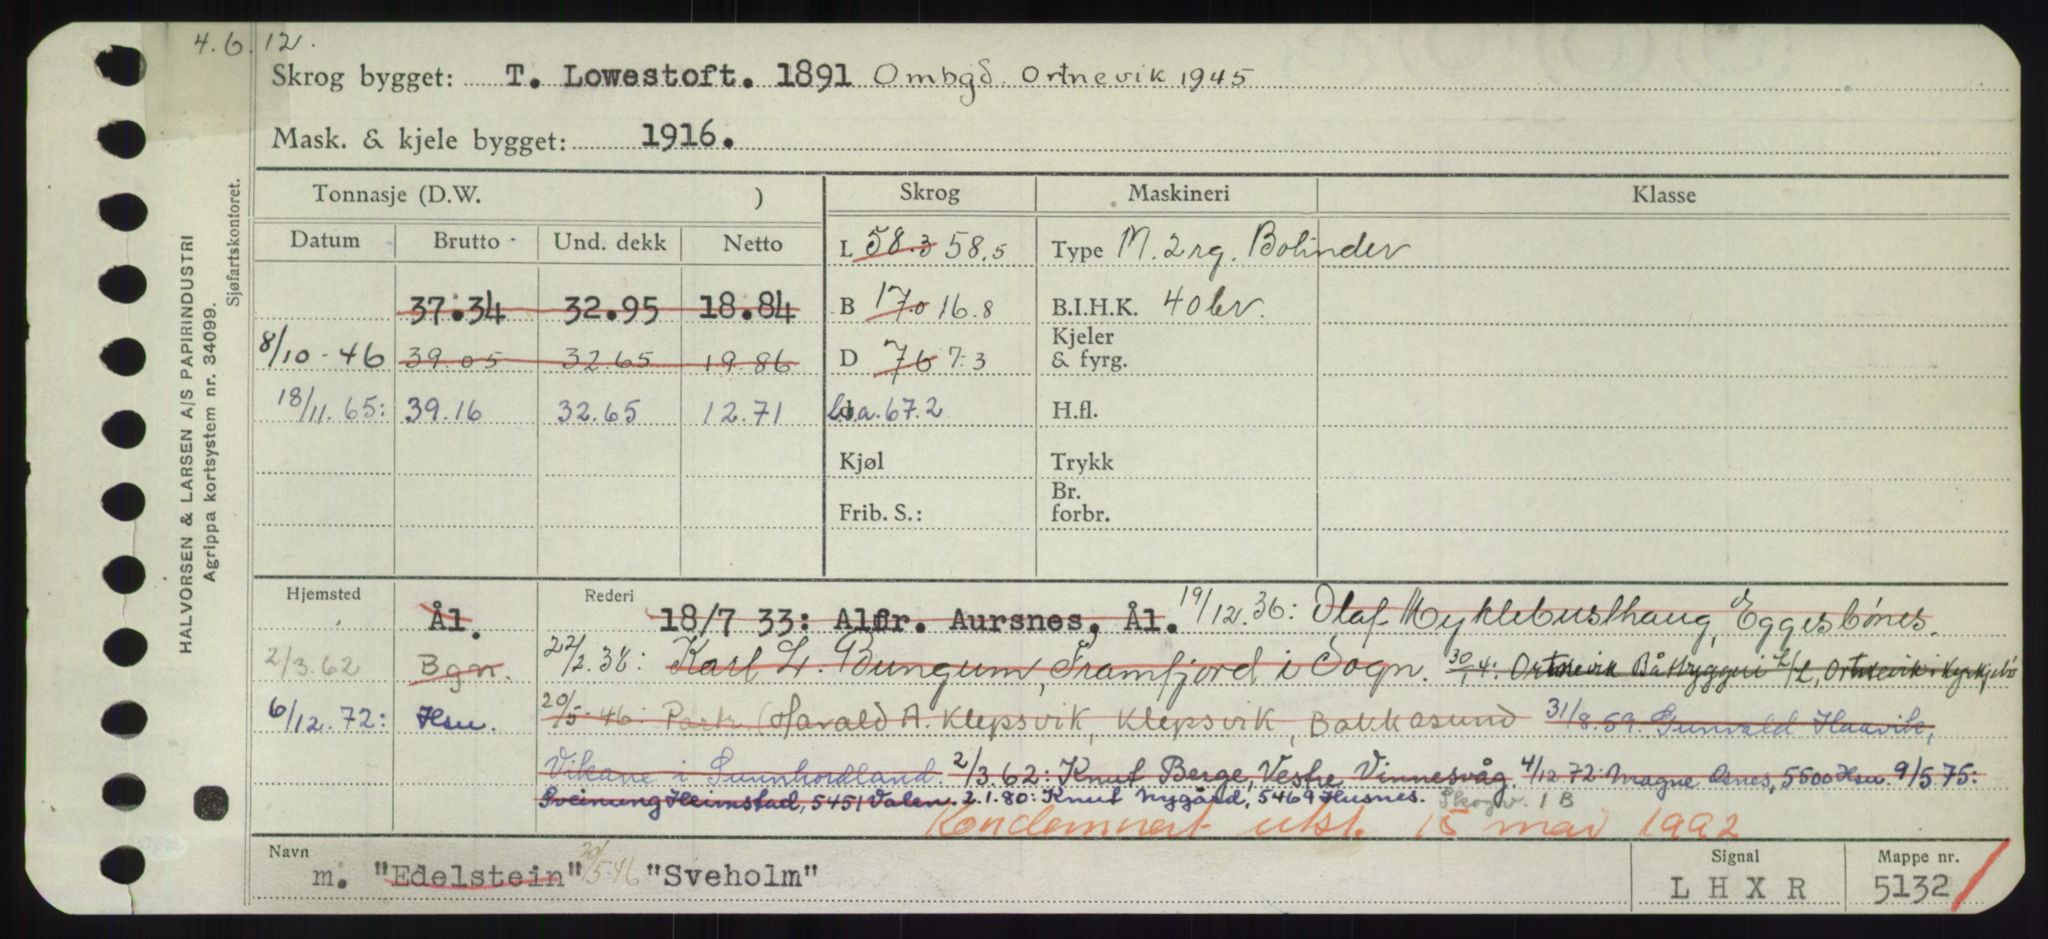 4.6.12.
Skrog bygget: T. Lowestoft. 1891 Ombgd. Ortnevik 1945
Mask. & kjele bygget: 1916.
HALVORSEN & LARSEN A/S PAPIRINDUSTRI
Agrippa kortsystem nr. 34099.
Sjøfartskontoret.
Tonnasje (D.W. ) Skrog Maskineri Klasse
Datum Brutto Und. dekk Netto L 58.3 58.5 Type M. 2 rg. Bolinder
37.34 32.95 18.84 B 17.0 16.8 B.I.H.K. 40
8/10-46 39.05 32.65 19.86 D 7.6 7.3 Kjeler & fyrg.
18/11.65: 39.16 32.65 12.71 l.o.a. 67.2 H.fl.
Kjøl Trykk
Frib. S.: Br. forbr.
Hjemsted Ål. Rederi 18/7 33: Alfr. Aursnes, Ål. 19/12.36: Olaf Myklebusthaug, Eggesbönes.
2/3.62 Bgn. 22/2.38: Karl L. Bungum, Framfjord i Sogn. 30/4: Ortnevik Båtbyggeri L/L, Ortnevik i Kyrkjebö
6/12.72: Hsn. 20/5-46: Park (Harald A. Klepsvik, Klepsvik, Bakkasund 31/8.59. Gunvald Haavik,
Vikane i Sunnhordland. 2/3.62: Knut Berge, Vestre Vinnesvåg. 4/12 72: Magne Osnes, 5500 Hsn. 9/5.75:
Sveinung Heimstad, 5451 Valen. 2.1.80: Knut Nygård, 5469 Husnes. Skogv. 1 B
Kondemnert utst. 15 mai 1992
Navn m. "Edelstein" 20/5-46 "Sveholm" Signal LHXR Mappe nr. 5132